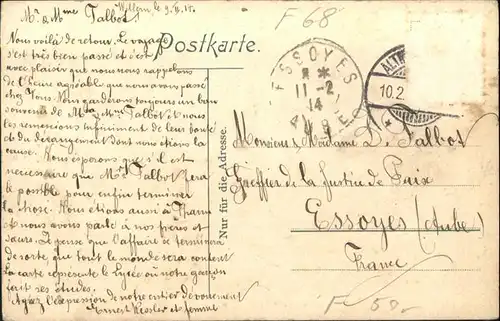 Mr. & Mme Talbot!
Willern, le 9. II. 14.
Nous voilà de retour. Le voyage
s'est très bien passé et c'est
avec plaisir que nous nous rappelons
de l'heure agréable que nous avons passé
chez Vous. Nous garderons toujours un bon
souvenir de Mr & Mme Talbot & nous
les remercions infiniment de leur bonté
& du dérangement dont nous étions la
cause. Nous esperons que s'il est
necessaire que Mr Talbot fera
le possible pour enfin terminer
la chose. Nous étions aussi à Thann
& nous avons parlé à nos frères et
sœurs. Je pense que l'affaire se terminera
de sorte que tout le monde sera content
La carte représente le Lycée où notre garçon
fait ses études.
Agréez l'expression de notre entier dévouement
Ernest Kessler et femme
Postkarte.
Nur für die Adresse.
F 68
ESSOYES
11-2
14
AUBE
ALT
10.2
Monsieur & Madame D. Talbot
Greffier de la Justice de Paix
Essoyes (Aube)
France
F 50